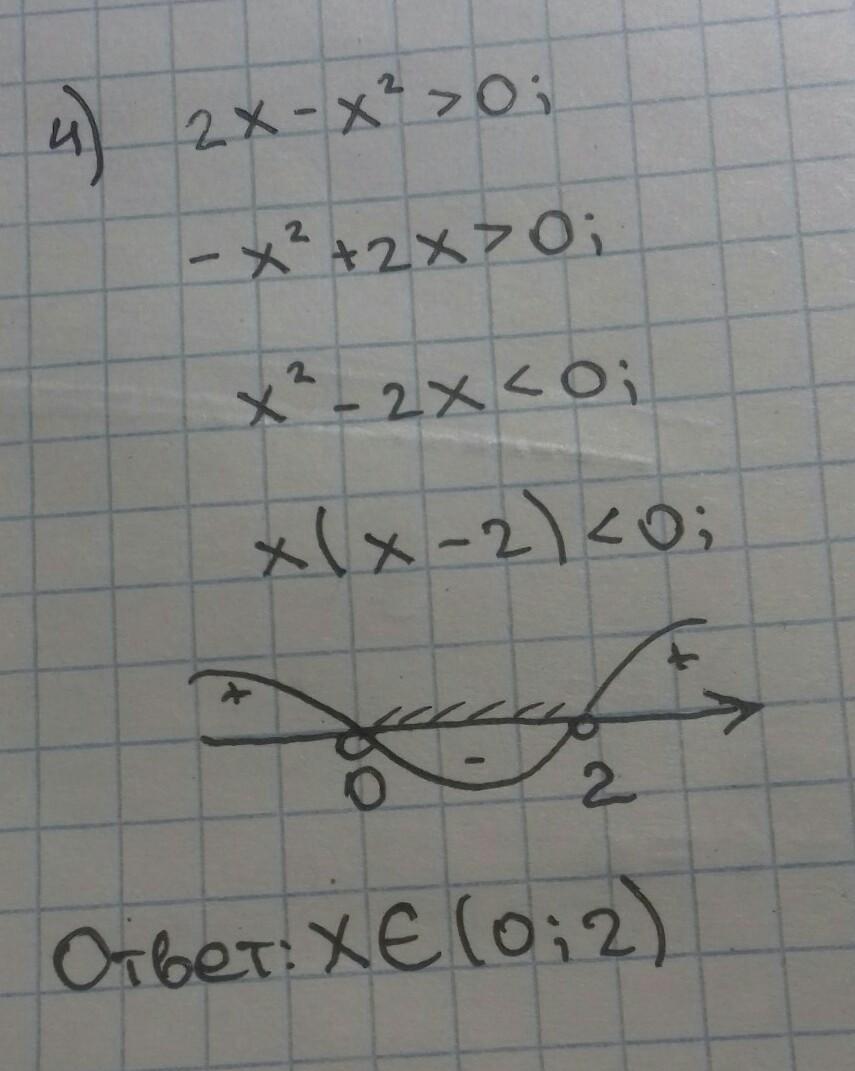 4) 2x - x² > 0;
- x² + 2x > 0;
x² - 2x < 0;
x(x - 2) < 0;
+ - +
0 2
Ответ: x∈(0; 2)